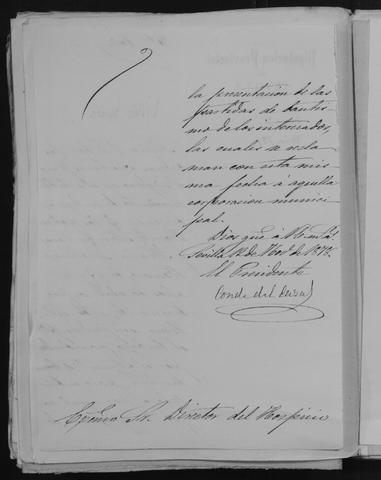 la presentación de las
partidas de bautis-
mo de los interesados,
las cuales se recla
man con esta mis
ma fecha á aquella
corporacion munici
pal.
Dios gue. á V.E. m. as.
Sevilla 12 de Nove. de 1875.
El Presidente
Conde del
Excmo Sr. Director del Hospicio